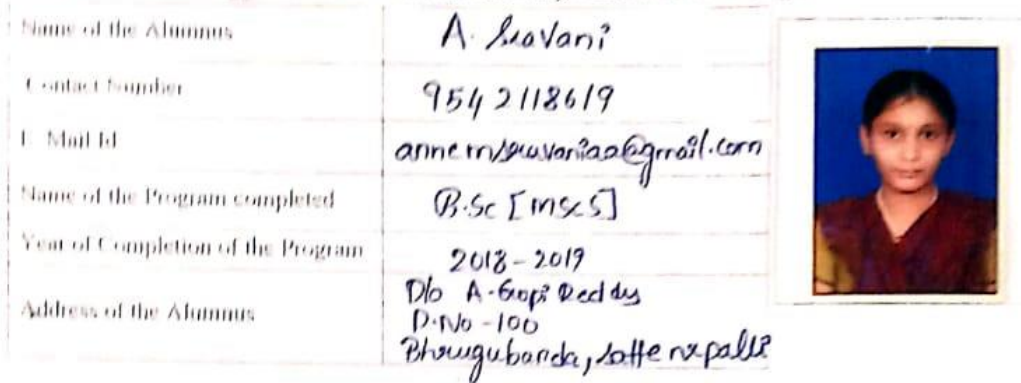 Name of the Alumnus A. Sravani
Contact Number 9542118619
E-Mail Id @gmail.com
Name of the Program completed B.Sc [mscs]
Year of Completion of the Program 2018-2019
Address of the Alumnus D/o A. Gopi Reddy
D.No -100
Bhrugubanda, Sattenapalli